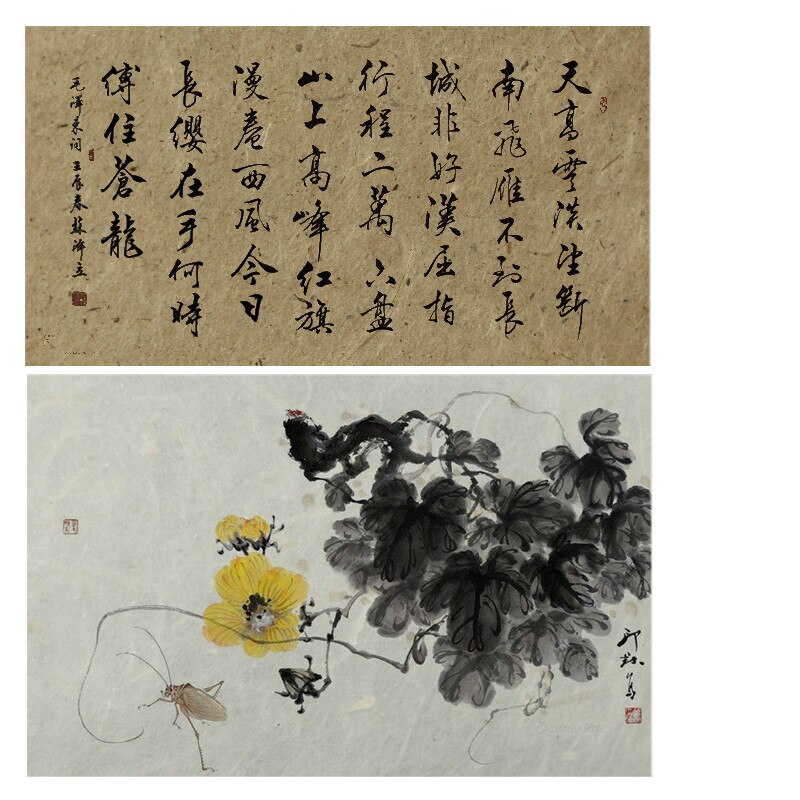 天高雲淡望斷
南飛雁不到長
城非好漢屈指
行程二萬六盤
山上高峰红旗
漫卷西風今日
長纓在手何時
縛住蒼龍
毛澤东词 壬辰春 蘇澤立